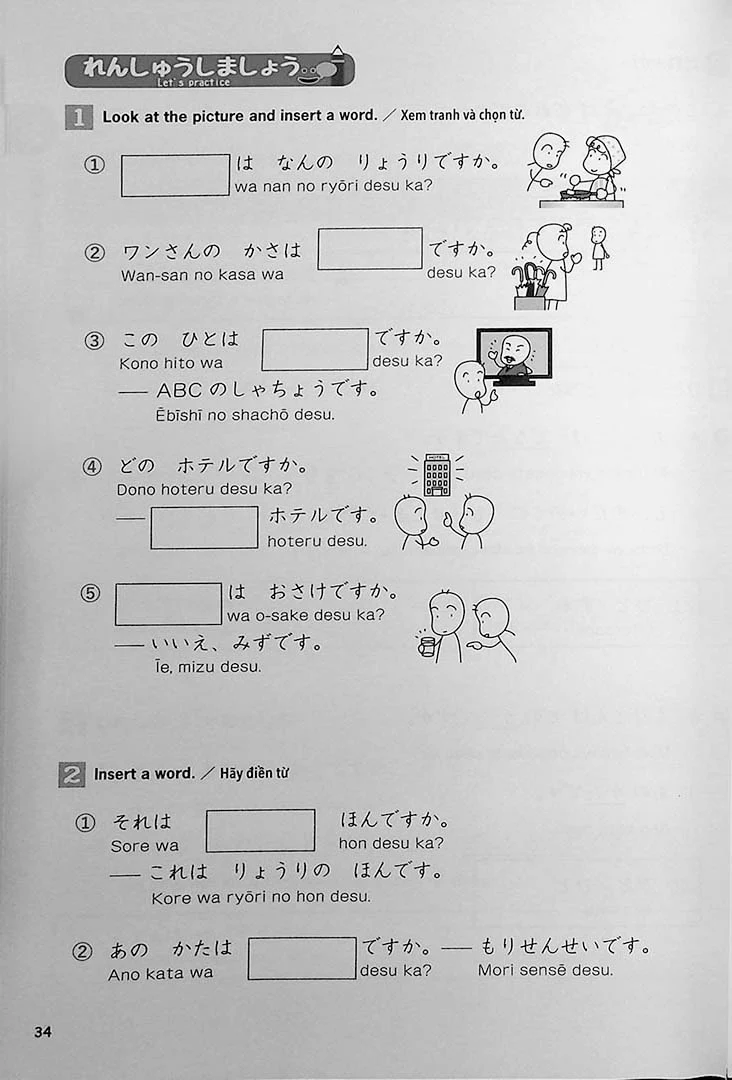 れんしゅうしましょう
Let's practice
1 Look at the picture and insert a word. ／ Xem tranh và chọn từ.
① は なんの りょうりですか。
wa nan no ryōri desu ka?
② ワンさんの かさは ですか。
Wan-san no kasa wa desu ka?
③ この ひとは ですか。
Kono hito wa desu ka?
── ABCのしゃちょうです。
Ēbīshī no shachō desu.
HOTEL
④ どの ホテルですか。
Dono hoteru desu ka?
── ホテルです。
hoteru desu.
⑤ は おさけですか。
wa o-sake desu ka?
── いいえ、みずです。
Īe, mizu desu.
2 Insert a word. ／ Hãy điền từ
① それは ほんですか。
Sore wa hon desu ka?
── これは りょうりの ほんです。
Kore wa ryōri no hon desu.
② あの かたは ですか。── もりせんせいです。
Ano kata wa desu ka? Mori sensē desu.
34